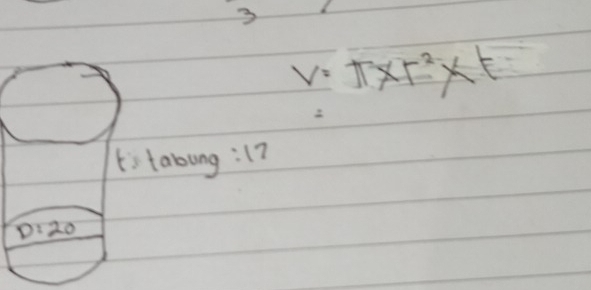 3
V = π x r² x t
=
t = tabung : 17
D : 20